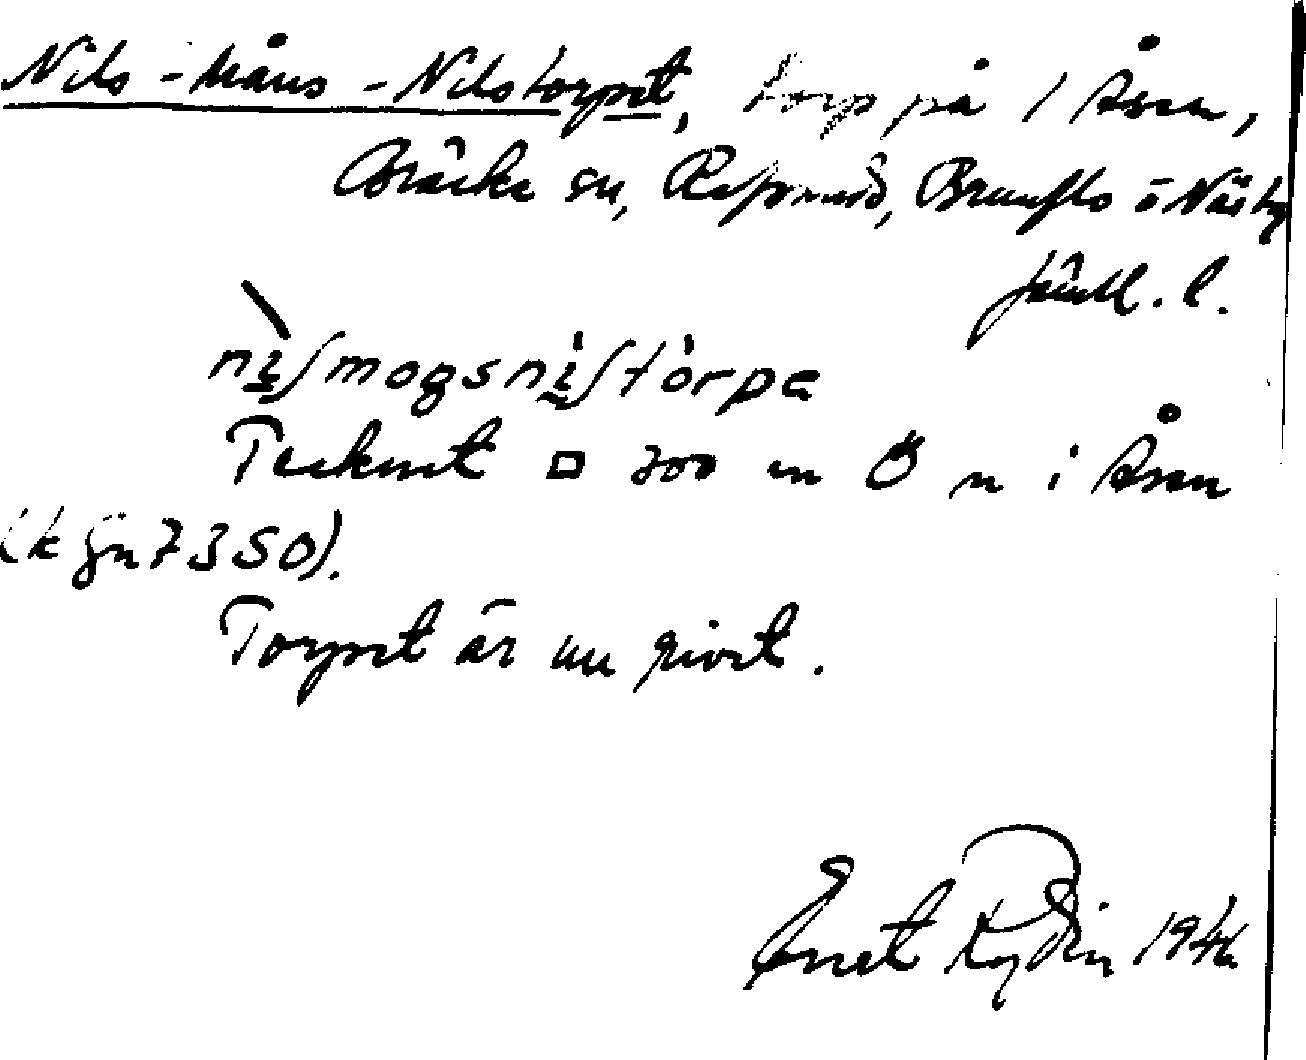 Nils-Måns-Nilstorpet, torp på 1 Åsen,
Bräcke sn, Refsunds, Brunflo o Näs tg
Jämtl. l.
ni̬ʃmogsni̬ʃtòrpa
Tecknat □ 300 m Ö n i Åsen
(k 7350).
Torpet är nu rivet.
Ernst Rydin 1946